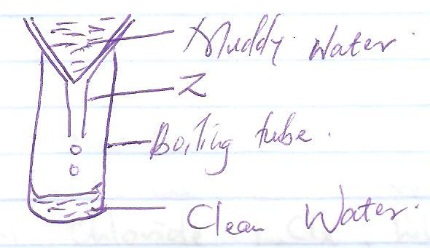 Muddy Water.
Z
Boiling tube.
Clean Water.